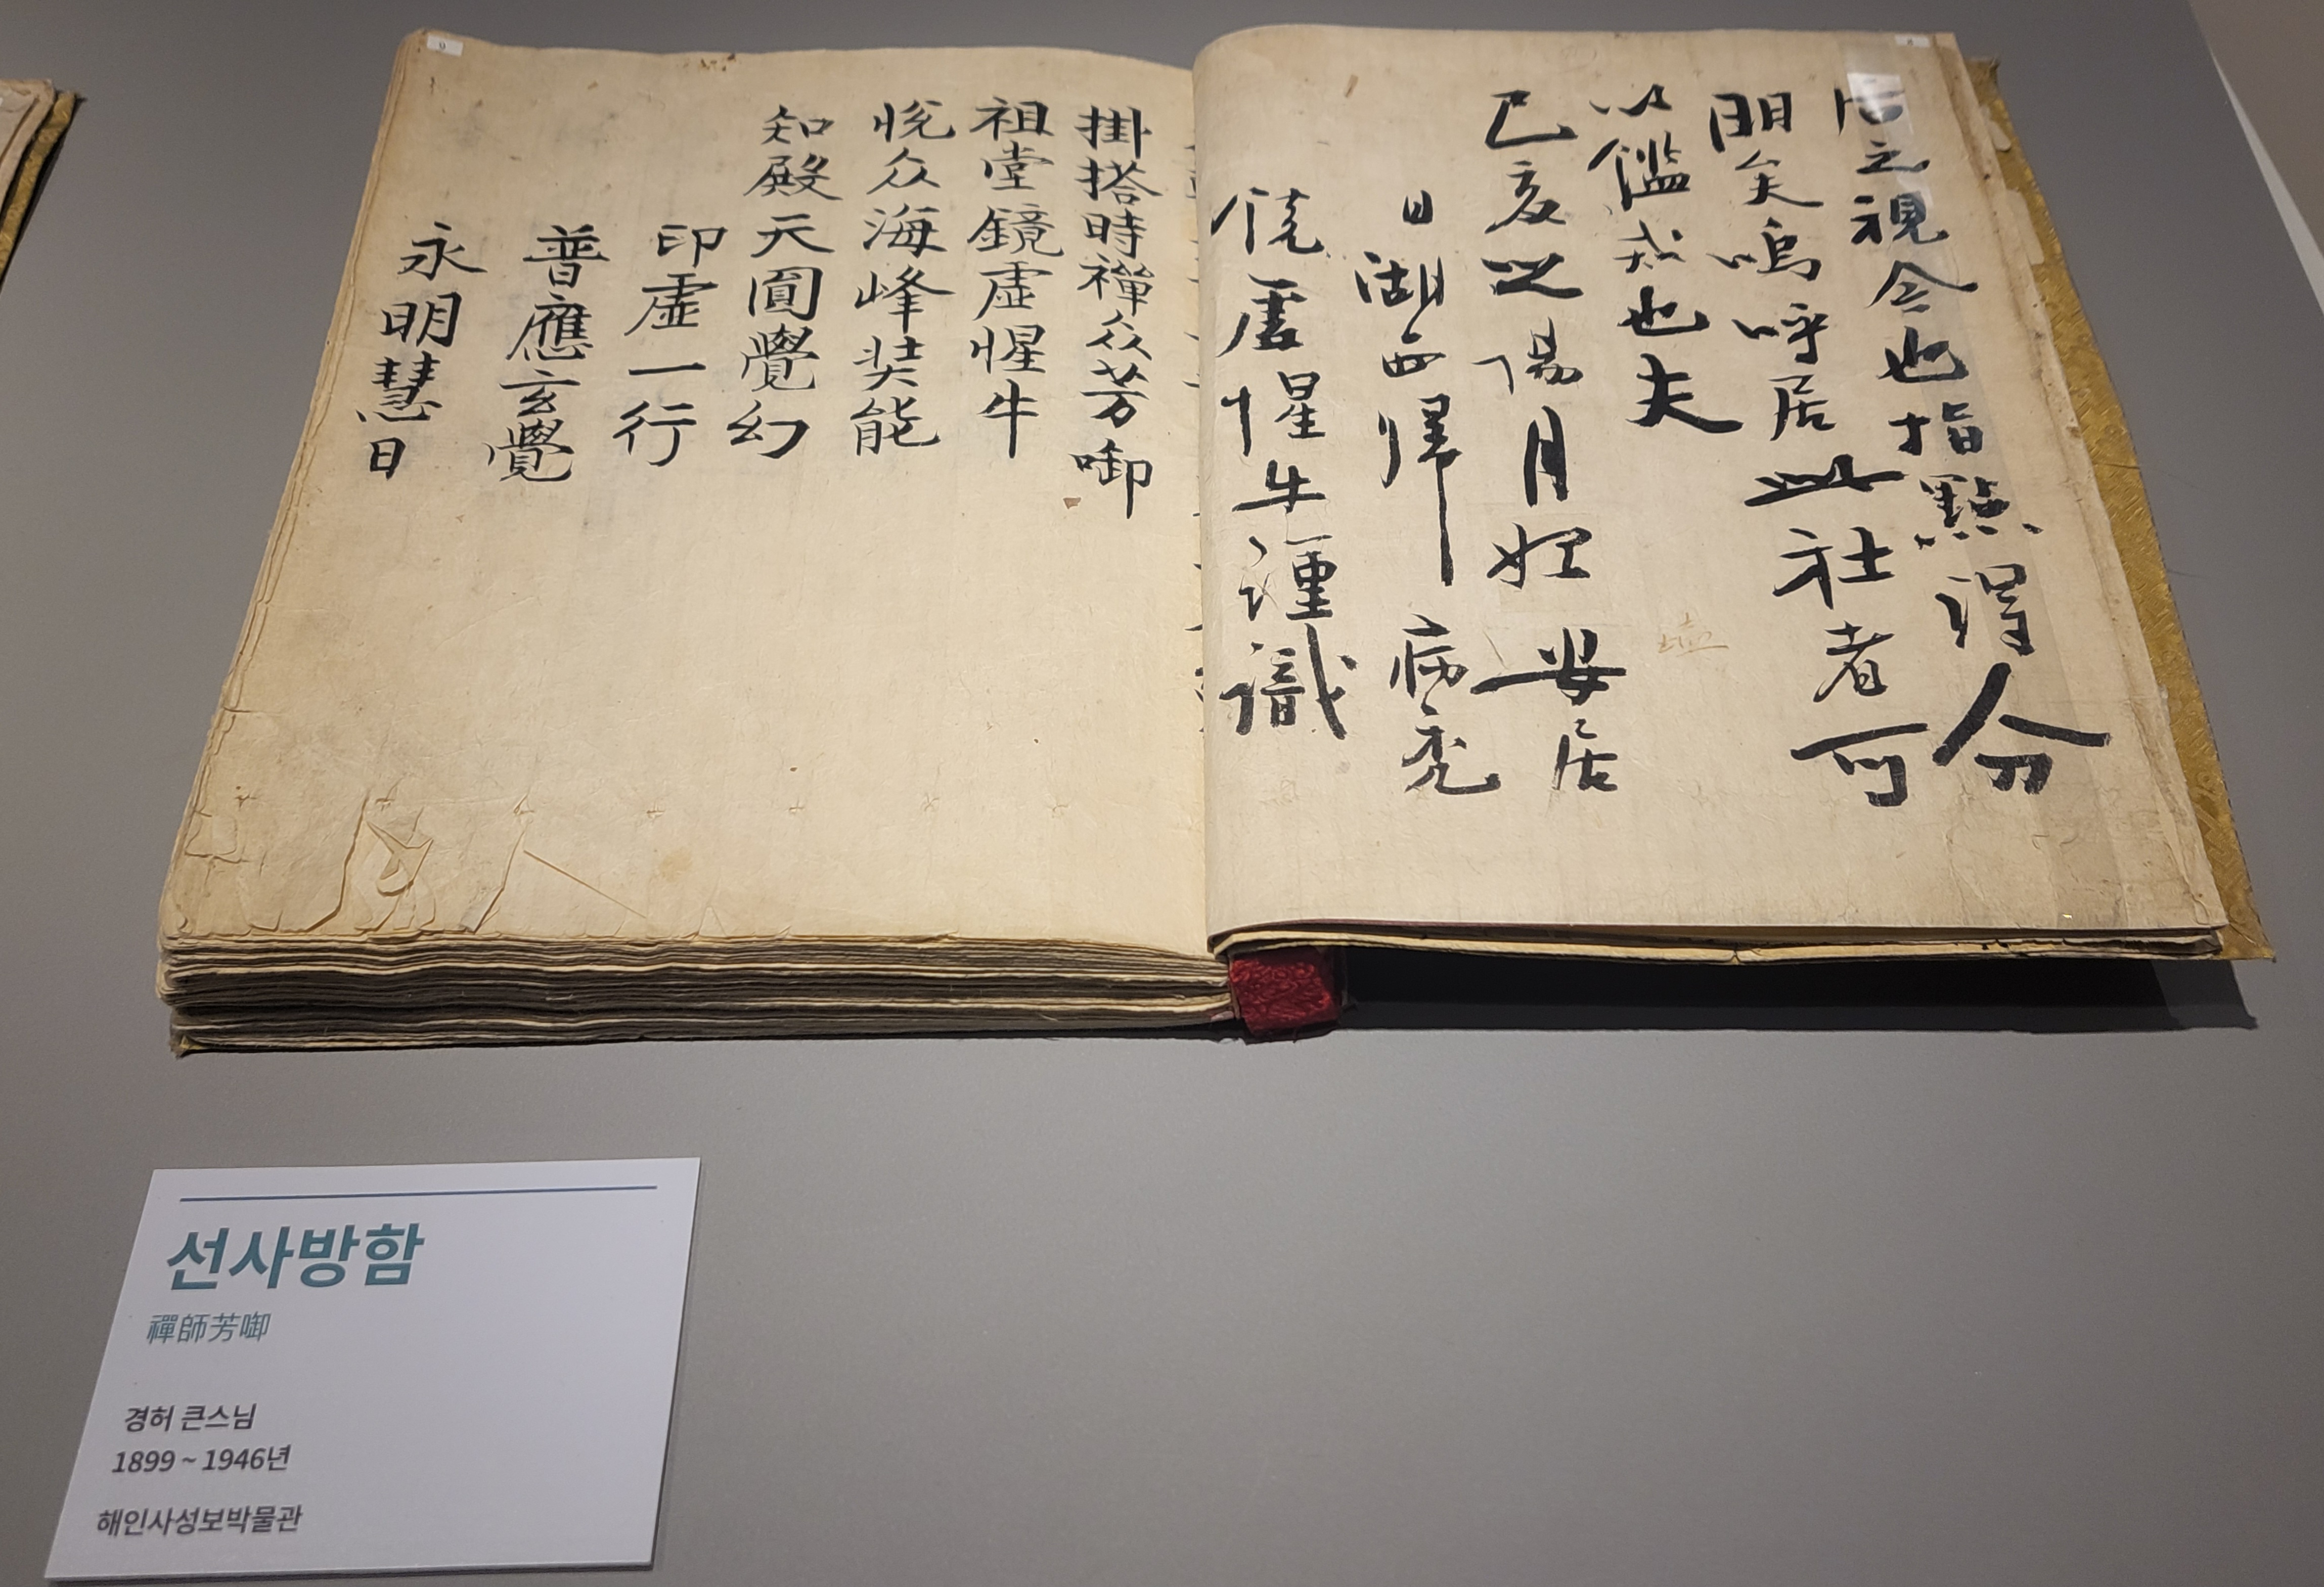 后之視今也指點得分
明矣嗚呼居此社者可
以鑑戒也夫
己亥之陽月始安居
日湖西歸病禿
鏡虛惺牛謹識
掛搭時禪众芳啣
祖堂鏡虛惺牛
悅众海峰奘能
知殿天圓覺幻
印虛一行
普應玄覺
永明慧日
선사방함
禪師芳啣
경허 큰스님
1899 ~ 1946년
해인사성보박물관